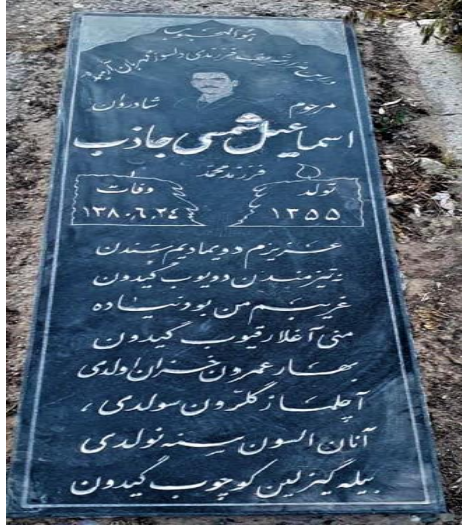 هوالمحبوب
مرحوم شادروان
اسماعیل شمسی جاذب
فرزند محمد
تولد وفات
۱۳۵۵ ۱۳۸۰٫۶٫۲۴
عزیزیم دویمادیم سندن
نیه تیز مندن دویوب گیدون
غریبم من بو دنیاده
منی آغلار قیوب گیدون
بهار عمرون خزان اولدی
آچلماز گللرون سولدی ،
آنان السون سنه نولدی
بیله گیزلین کوچوب گیدون